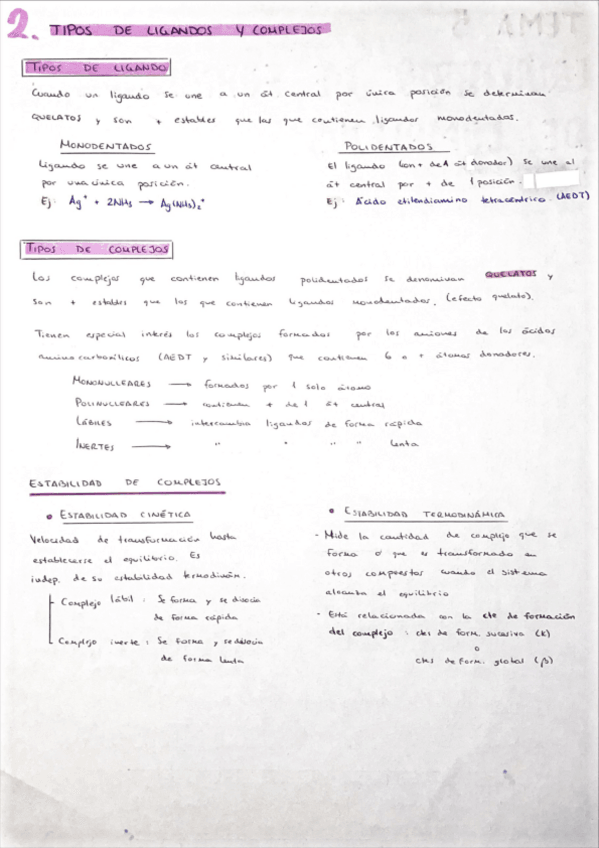 2. TIPOS DE LIGANDOS Y COMPLEJOS
TIPOS DE LIGANDO
Cuando un ligando se une a un át central por única posición se determinan
QUELATOS y son + estables que las que contienen ligandos monodentados.
MONODENTADOS
Ligando se une a un át central
por una única posición.
Ej: Ag⁺ + 2NH₃ → Ag(NH₃)₂⁺
POLIDENTADOS
El ligando (con + de 1 át donador) se une al
át central por + de 1 posición.
Ej: Ácido etilendiamino tetracéntrico (AEDT)
TIPOS DE COMPLEJOS
Los complejos que contienen ligandos polidentados se denominan QUELATOS y
son + estables que los que contienen ligandos monodentados. (efecto quelato).
Tienen especial interés los complejos formados por los aniones de los ácidos
aminocarboxílicos (AEDT y similares) que contienen 6 o + átomos donadores.
MONONUCLEARES → formados por 1 solo átomo
POLINUCLEARES → contienen + de 1 át central
LÁBILES → intercambia ligandos de forma rápida
INERTES → " " " " lenta
ESTABILIDAD DE COMPLEJOS
• ESTABILIDAD CINÉTICA
Velocidad de transformación hasta
establecerse el equilibrio. Es
indep. de su estabilidad termodinám.
Complejo lábil: Se forma y se disocia
de forma rápida
Complejo inerte: Se forma y se disocia
de forma lenta
• ESTABILIDAD TERMODINÁMICA
- Mide la cantidad de complejo que se
forma o que es transformado en
otros compuestos cuando el sistema
alcanza el equilibrio
- Está relacionada con la cte de formación
del complejo: ctes de form. sucesiva (K)
o
ctes de form. global (β)